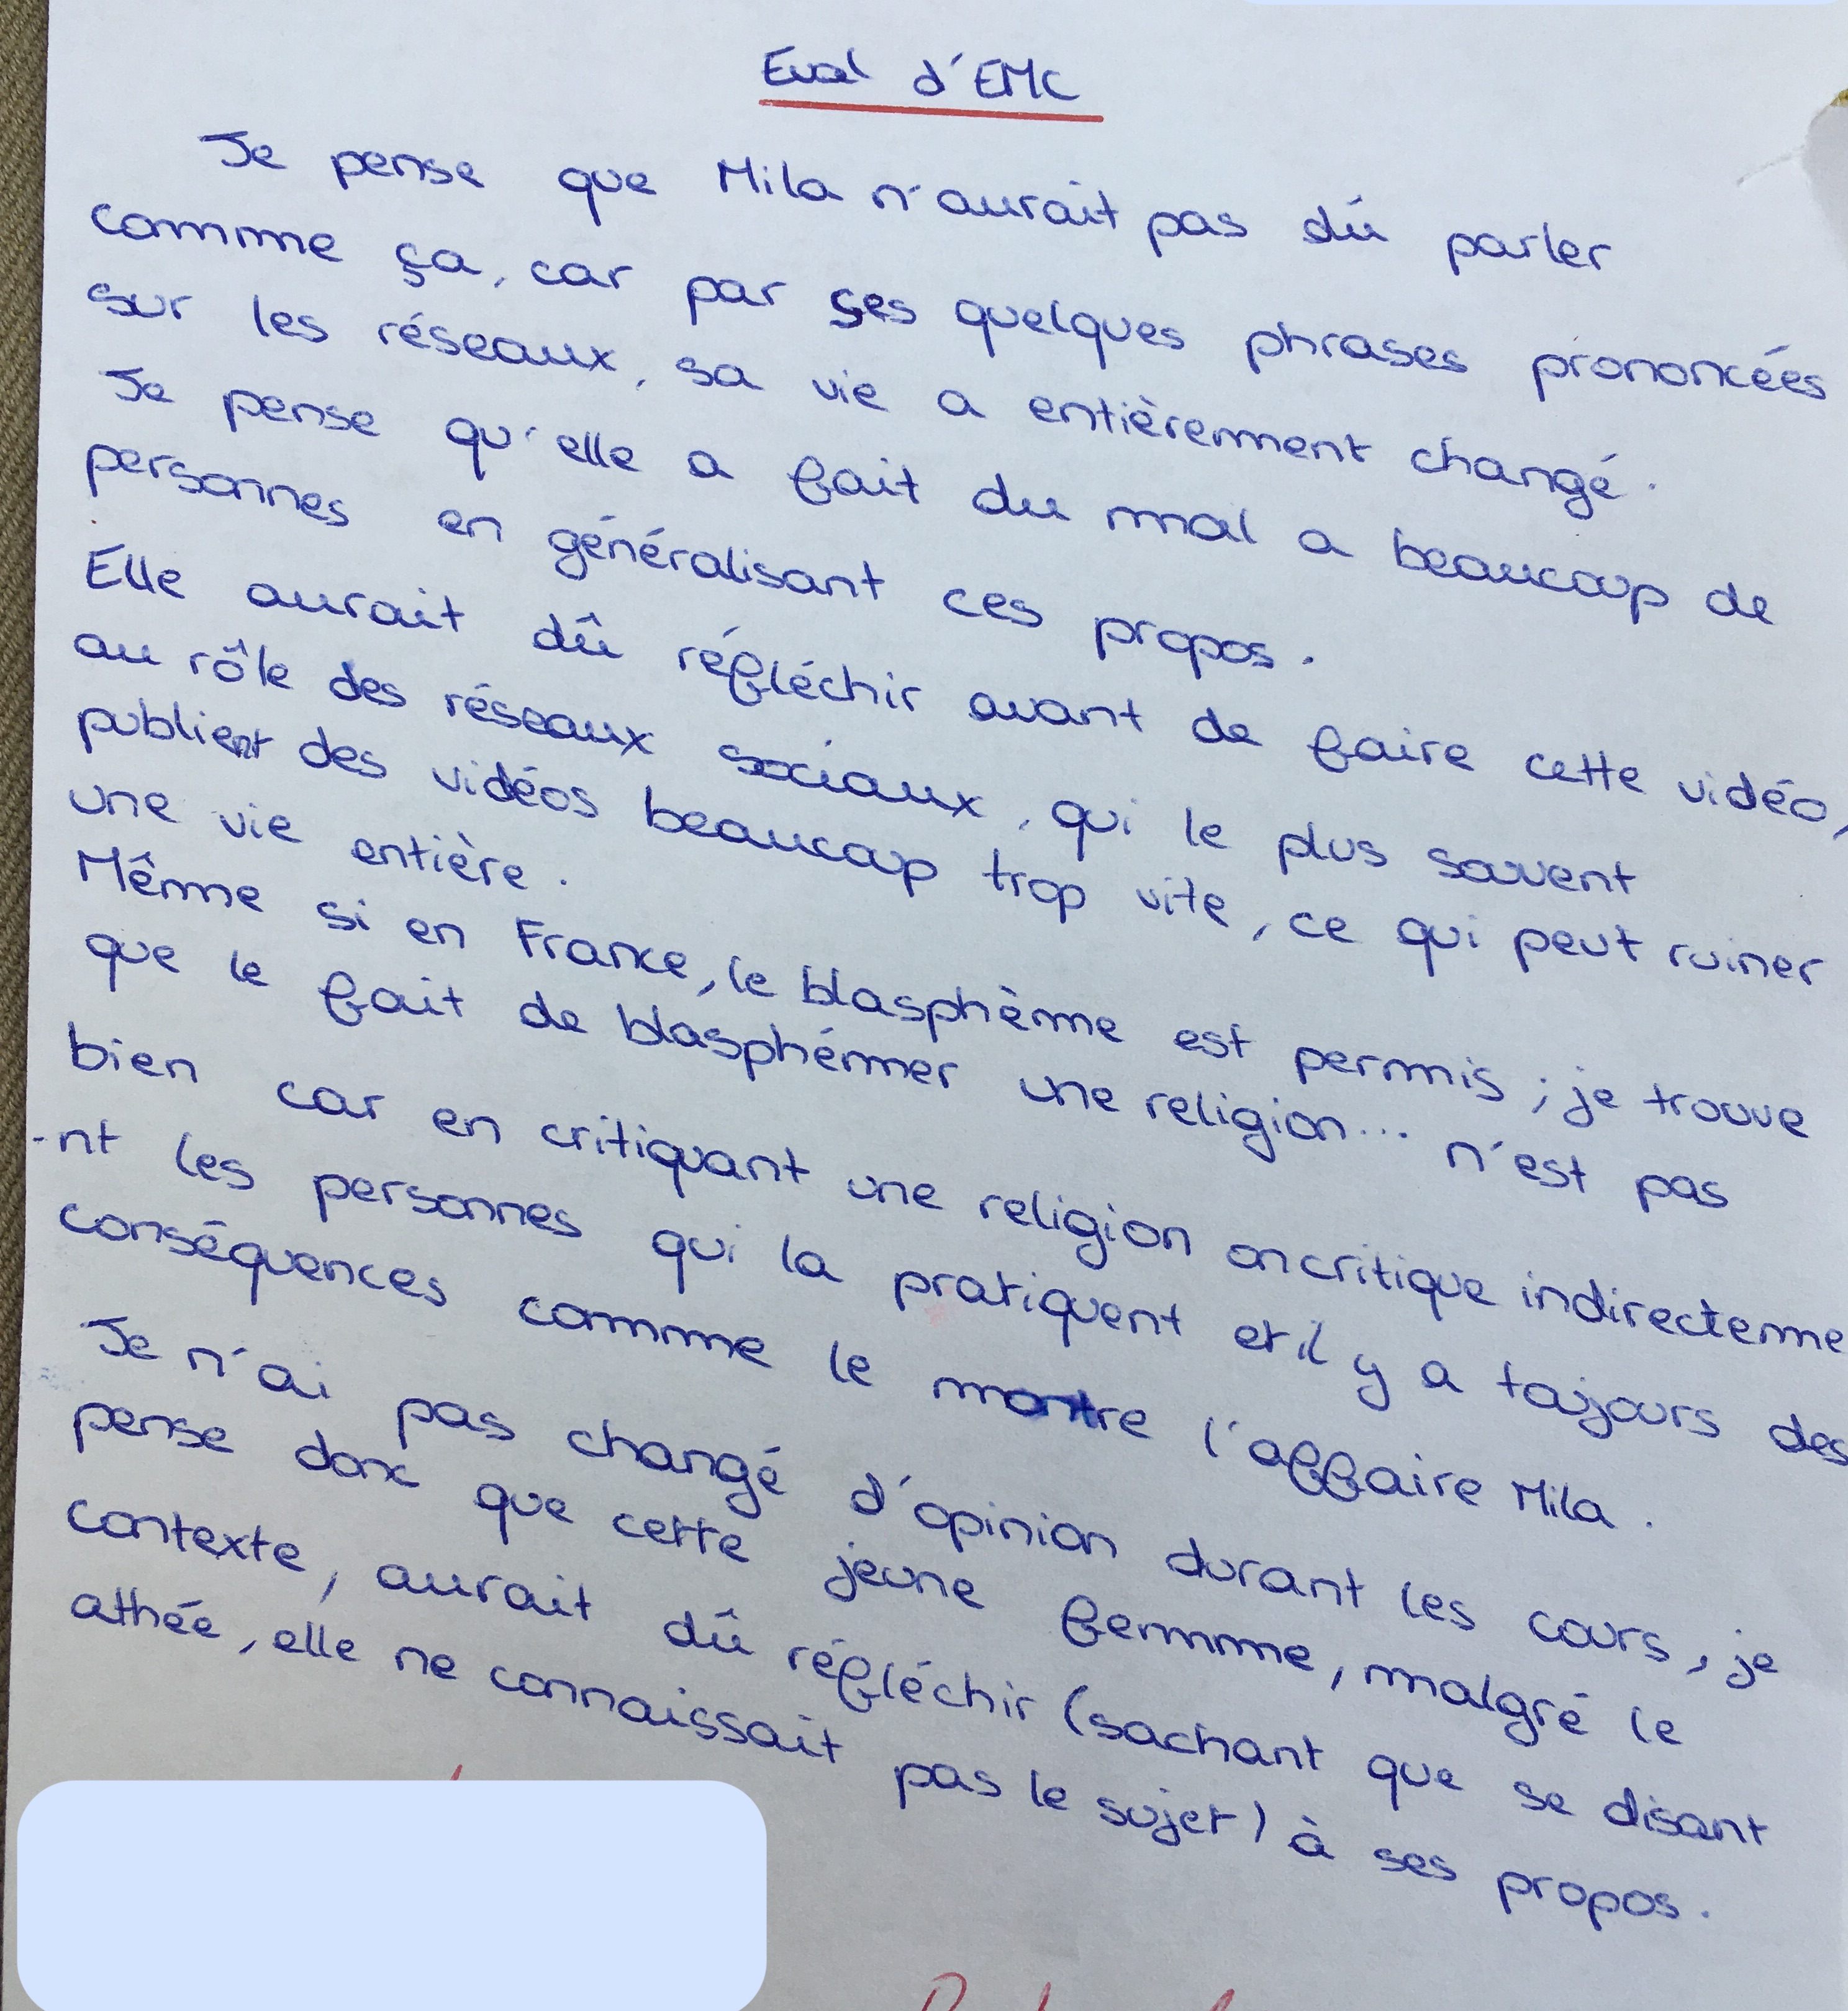 Eval d'EMC
Je pense que Mila n'aurait pas dû parler
comme ça, car par ses quelques phrases prononcées
sur les réseaux, sa vie a entièrement changé.
Je pense qu'elle a fait du mal a beaucoup de
personnes en généralisant ces propos.
Elle aurait dû réfléchir avant de faire cette vidéo,
au rôle des réseaux sociaux, qui le plus souvent
publient des vidéos beaucoup trop vite, ce qui peut ruiner
une vie entière.
Même si en France, le blasphème est permis ; je trouve
que le fait de blasphémer une religion... n'est pas
bien car en critiquant une religion on critique indirecteme
-nt les personnes qui la pratiquent et il y a toujours des
conséquences comme le montre l'affaire Mila.
Je n'ai pas changé d'opinion durant les cours, je
pense donc que cette jeune femme, malgré le
contexte, aurait dû réfléchir (sachant que se disant
athée, elle ne connaissait pas le sujet) à ses propos.